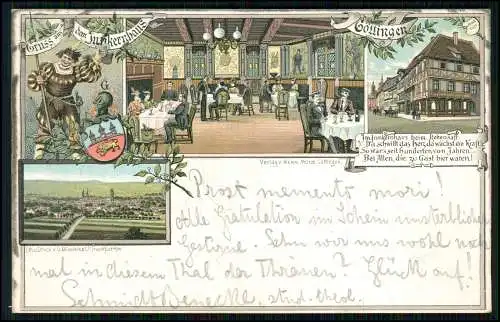 Gruss aus
Dem Junkernhaus
Göttingen
Im Junkernhaus beim Rebensaft
Da schwillt das Herz, da wächst die Kraft
So war's seit hunderten von Jahren
Bei Allen, die zu Gast hier waren!
Verlag v.
Göttingen.
Prost memento mori!
Alle Gratulation im Schein unsterblicher
Gestirne. Sehn wir uns wohl noch
mal in diesem Thal der Thränen? Glück auf!
Schmidt Benecke, stud. theol.